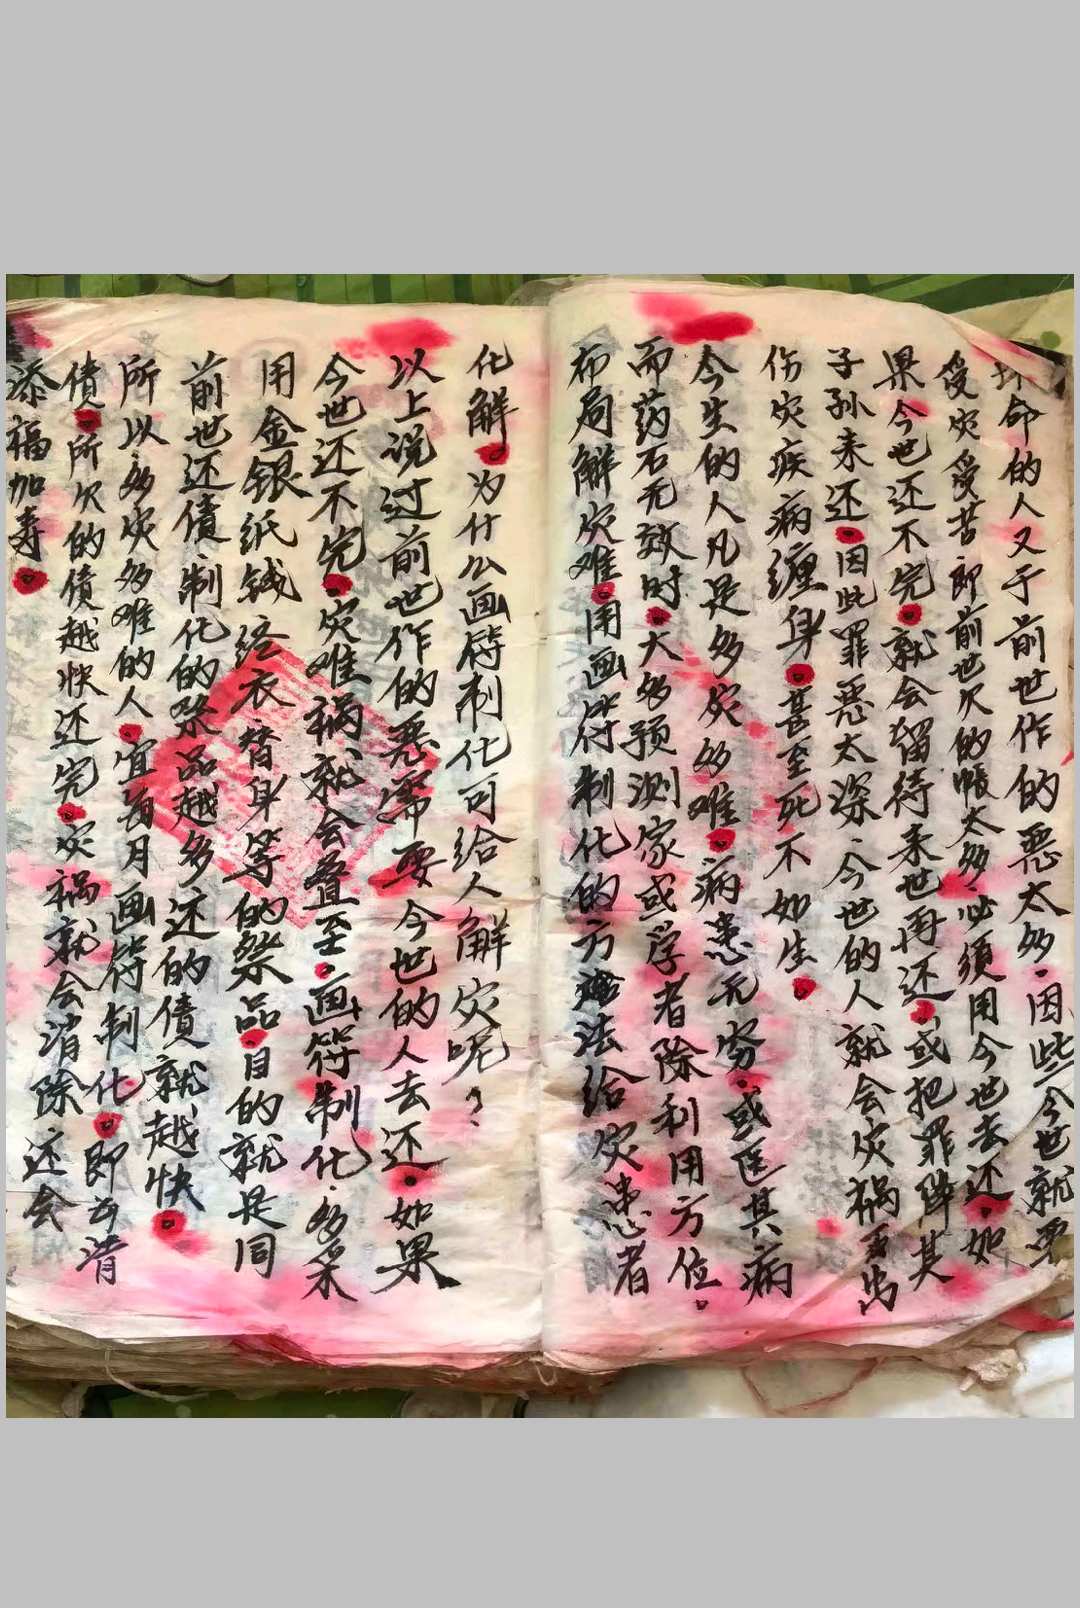 坏命的人又于前世作的恶太多.因些今世就要
受灾受苦.即前世欠的帳太多.必须用今世去还.如
果今世还不完.就会留待来世再还.或把罪孽其
子孙来还.因此罪恶太深.今世的人就会灾祸
伤灾疾病缠身.甚至死不如生.
今生的人凡是多灾多难.病患无穷.或医其病
而药石无效时.大多预测家或学者除利用方位.
布局解灾难.用画符制化的方法给灾患者
化解.为什么画符制化可给人解灾呢?
以上说过前世作的恶需要今世的人去还.如果
今世还不完.灾难祸就会叠至.画符制化.多采
用金银纸钱给衣替身等的祭品.目的就是同
前世还债.制化的祭品越多还的债就越快.
所以多灾多难的人.宜每月画符制化.即云清
债.所欠的债越快还完.灾祸就会消除还会
添福加寿.